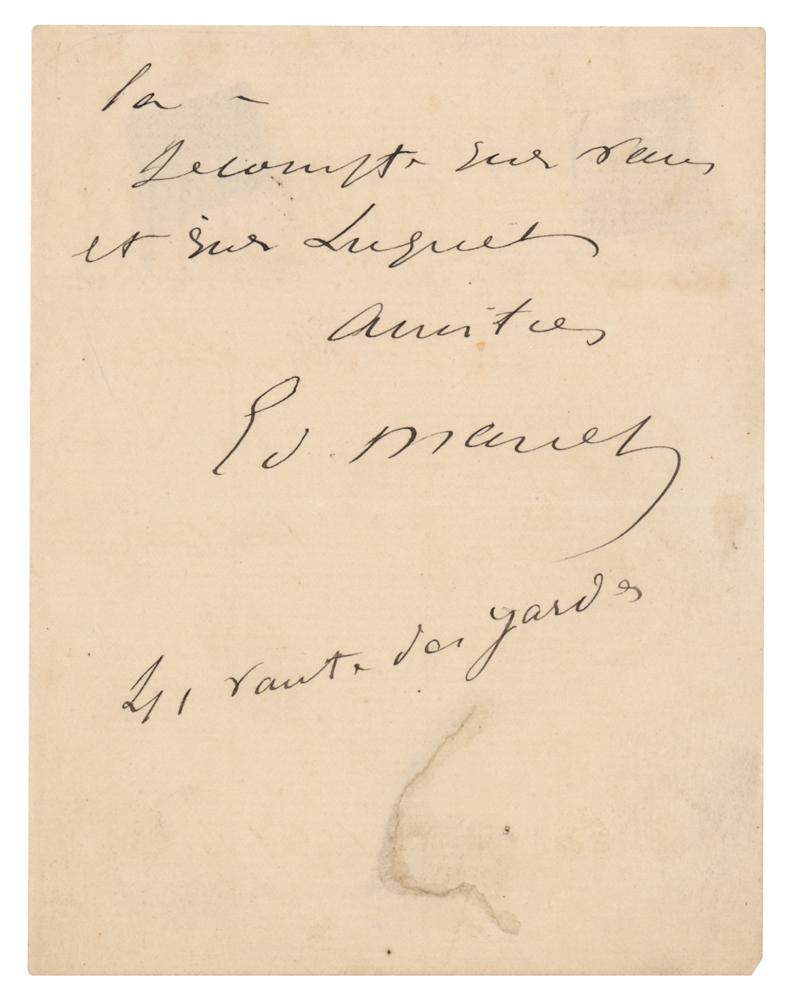 la –
Je compte sur vous
et sur Luguet
amitiés
Ed. Manet
41, route des gardes